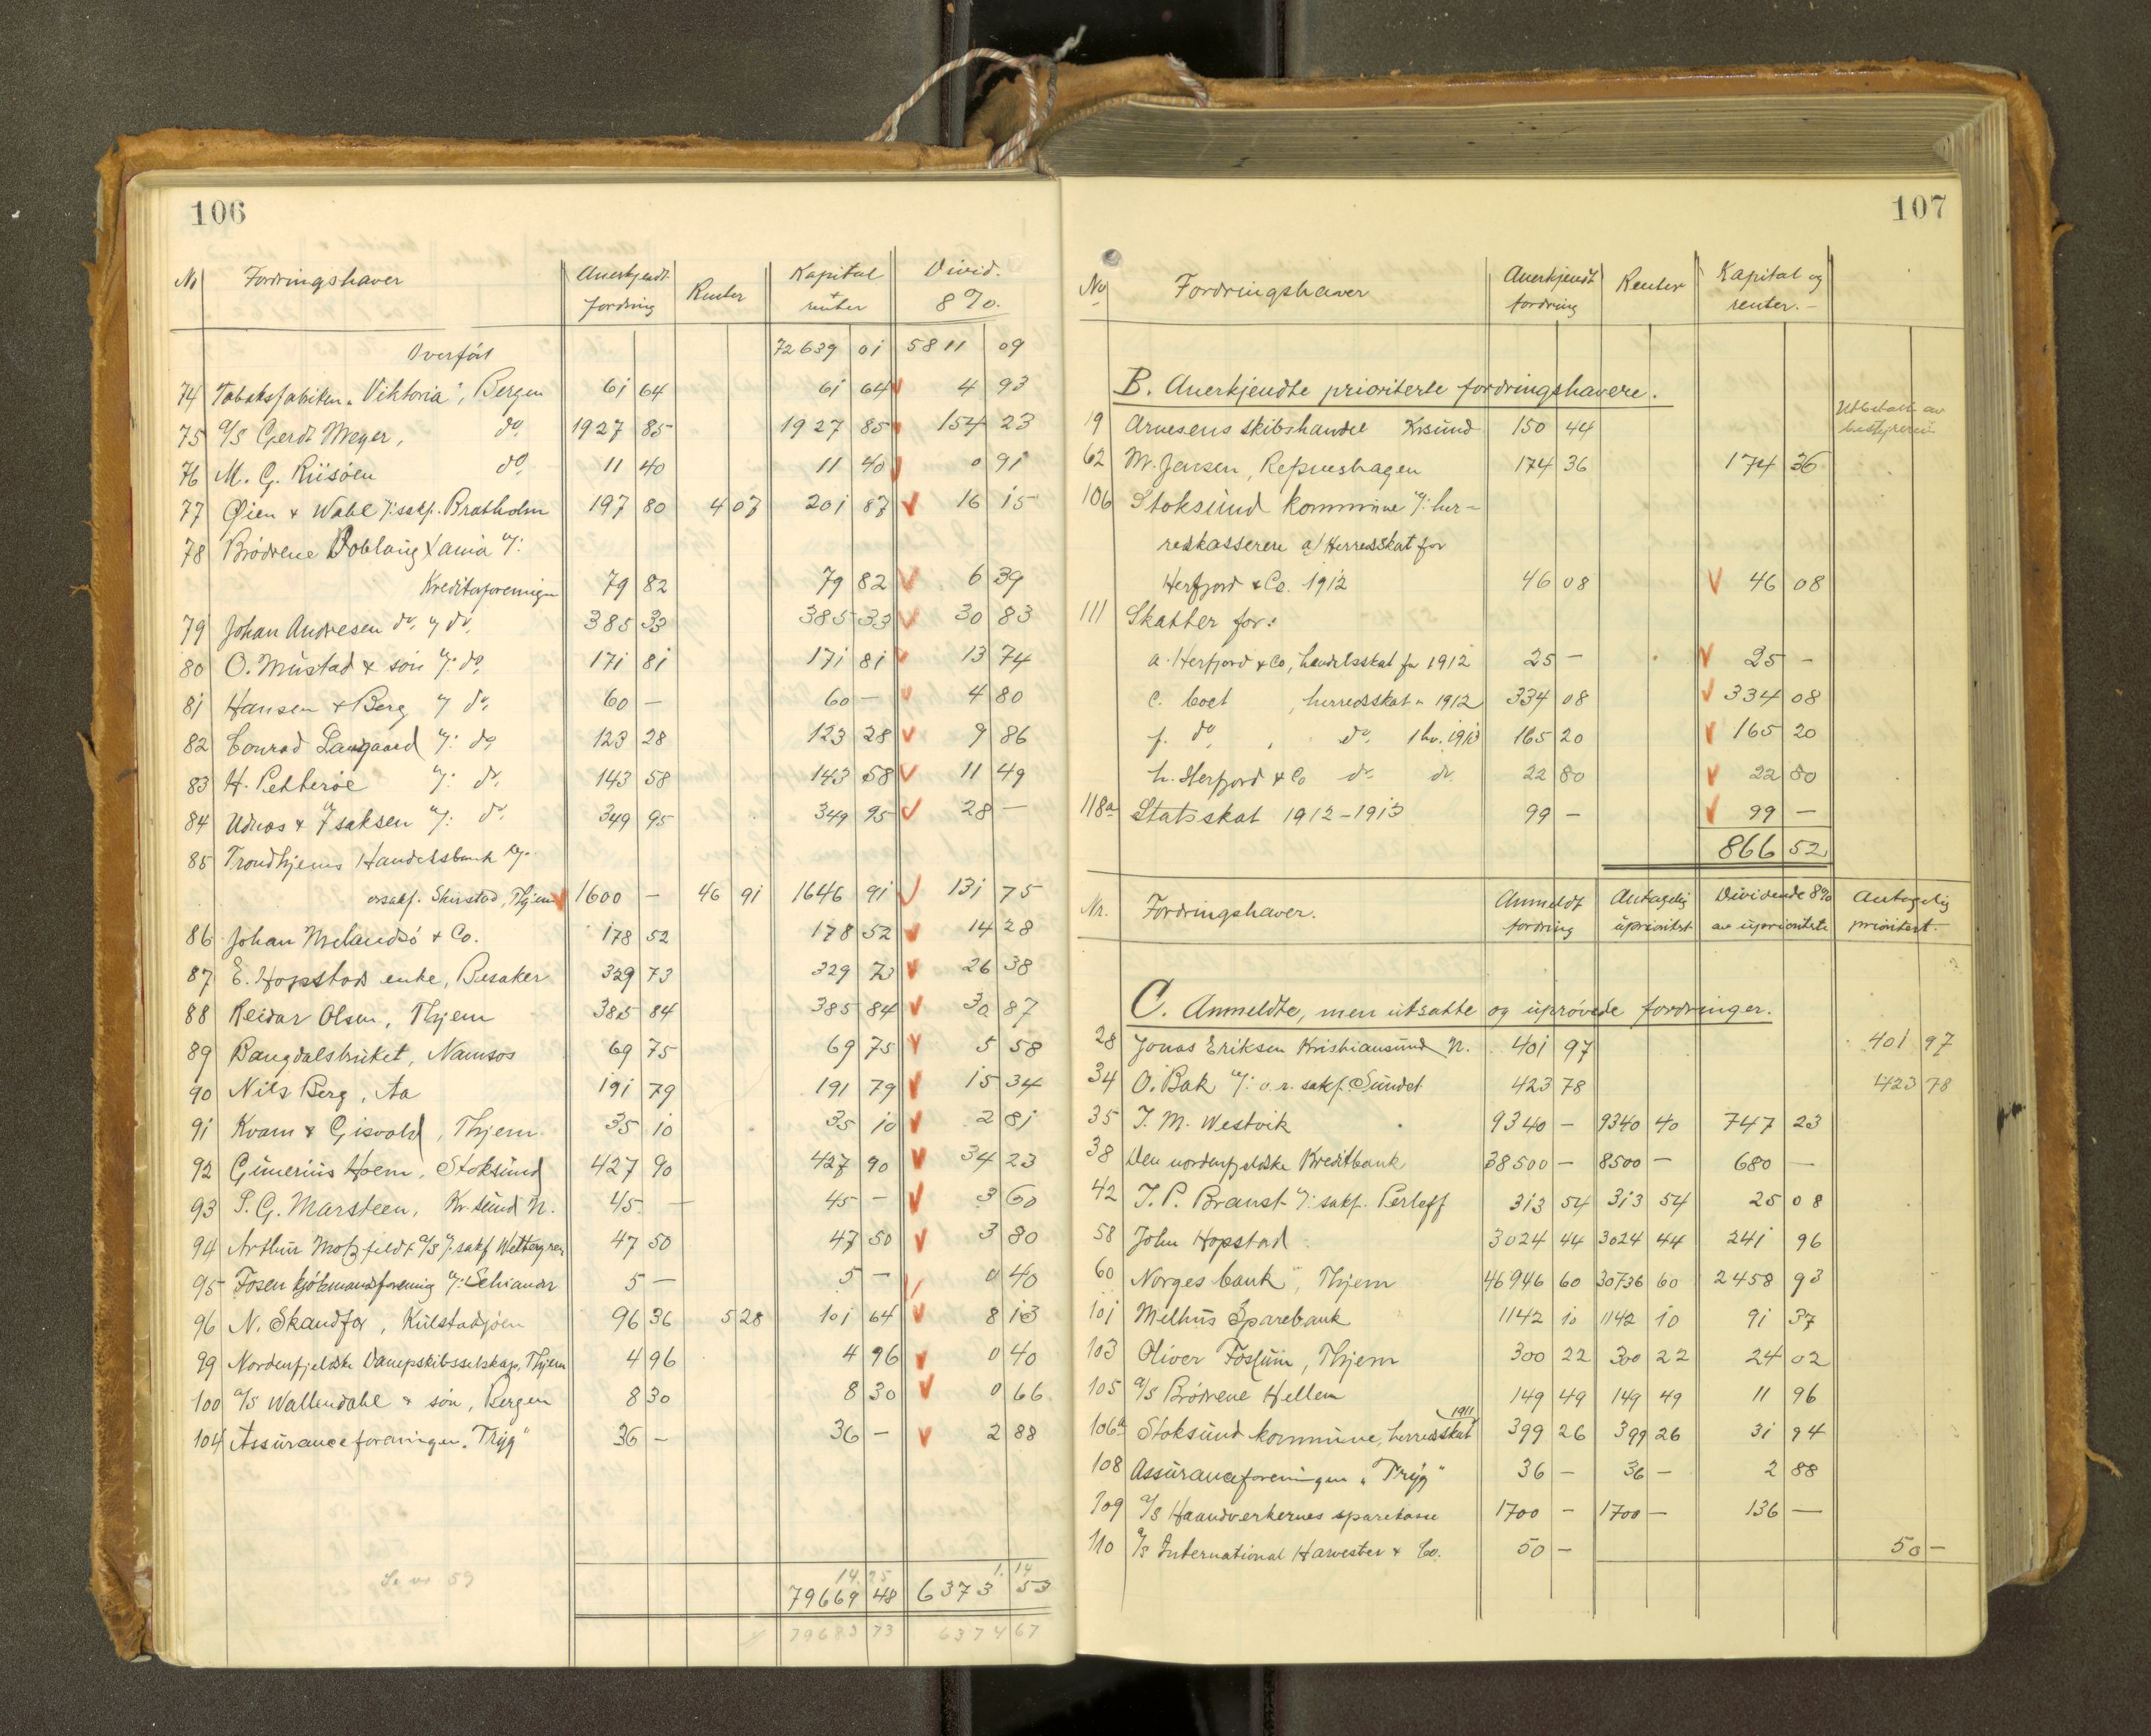 106
No Fordringshaver Anerkjendt fordring Renter Kapital + renter Divid. 8 %.
Overført 72639 01 5811 09
74 Tobaksfabriken „Viktoria", Bergen 61 64 61 64 4 93
75 A/S Gerdt Meyer, do. 1927 85 1927 85 154 23
76 M. G. Riisøen do. 11 40 11 40 0 91
77 Øien & Wahl v/: sakf. Bratholm 197 80 4 07 201 87 16 15
78 Brødrene Dobloug Xania v/:
Kreditorforeningen 79 82 79 82 6 39
79 Johan Andresen do. v/ do. 385 33 385 33 30 83
80 O. Mustad & søn v/: do. 171 81 171 81 13 74
81 Hansen & Berg v/ do. 60 — 60 — 4 80
82 Conrad Langaard v/: do. 123 28 123 28 9 86
83 H. Petterøe v/: do. 143 58 143 58 11 49
84 Udnæs & Isaksen v/: do. 349 95 349 95 28 —
85 Trondhjems Handelsbank v/:
orsakf. Skirstad, Thjem 1600 — 46 91 1646 91 131 75
86 Johan Melandsø & Co. 178 52 178 52 14 28
87 E. Hopstads enke, Besaker 329 73 329 73 26 38
88 Reidar Olsen, Thjem 385 84 385 84 30 87
89 Bangdalsbruket, Namsos 69 75 69 75 5 58
90 Nils Berg, Aa 191 79 191 79 15 34
91 Kvam & Gisvold, Thjem. 35 10 35 10 2 81
92 Gunerius Hoem, Stoksund 427 90 427 90 34 23
93 P. G. Marsteen, Kr.sund N. 45 — 45 — 3 60
94 Arthur Motzfeldt A/S v/: sakf Wettergren 47 50 47 50 3 80
95 Fosen kjøbmandsforening v/: Schiander 5 — 5 — 0 40
96 N. Skandfer, Kulstadsjøen 96 36 5 28 101 64 8 13
99 Nordenfjeldske Dampskibsselskap, Thjem 4 96 4 96 0 40
100 A/S Wallendahl & søn, Bergen 8 30 8 30 0 66
104 Assuranceforeningen „Tryg" 36 — 36 — 2 88
14.25 1.14
59 79669 48 6373 53
79683 73 6374 67
107
No Fordringshaver Anerkjendt fordring Renter Kapital og renter.—
B. Anerkjendte prioriterte fordringshavere.
Utbetalt av bestyreren
19 Arnesens skibshandel Krsund 150 44
62 M. Jensen, Repneshagen 174 36 174 36
106 Stoksund kommune v/: her-
redskasserer a/ Herredsskat for
Herfjord & Co. 1912 46 08 46 08
111 Skatter for:
a. Herfjord & Co, handelsskat for 1912 25 — 25 —
c. Coet, herredsskat „ 1912 334 08 334 08
f. do. , do. 1 hv. 1913 165 20 165 20
h. Herfjord & Co do. do. 22 80 22 80
118a Statsskat 1912–1913 99 — 99 —
866 52
Nr. Fordringshaver. Anmeldt fordring Antagelig uprioritert Dividende 8% av uprioriterte Antagelig prioritert.
C. Anmeldte, men utsatte og uprøvede fordringer.
28 Jonas Eriksen Kristiansund N. 401 97 401 97
34 O. Bak v/: o.r. sakf. Sundet 423 78 423 78
35 T. M. Westvik 9340 — 9340 40 747 23
38 Den nordenfjeldske Kreditbank 38500 — 8500 — 680 —
42 J. P. Branst v/: sakf. Perleff 313 54 313 54 25 08
58 John Hopstad 3024 44 3024 44 241 96
60 Norges bank, Thjem 46946 60 30736 60 2458 93
101 Melhus Sparebank 1142 10 1142 10 91 37
103 Oliver Fossum, Thjem 300 22 300 22 24 02
105 A/S Brødrene Hellem 149 49 149 49 11 96
1911
106a Stoksund kommune, herredsskat 399 26 399 26 31 94
108 Assuranceforeningen „Tryg" 36 — 36 — 2 88
109 A/S Haandverkernes sparekasse 1700 — 1700 — 136 —
110 A/S International Harvester & Co. 50 — 50 —